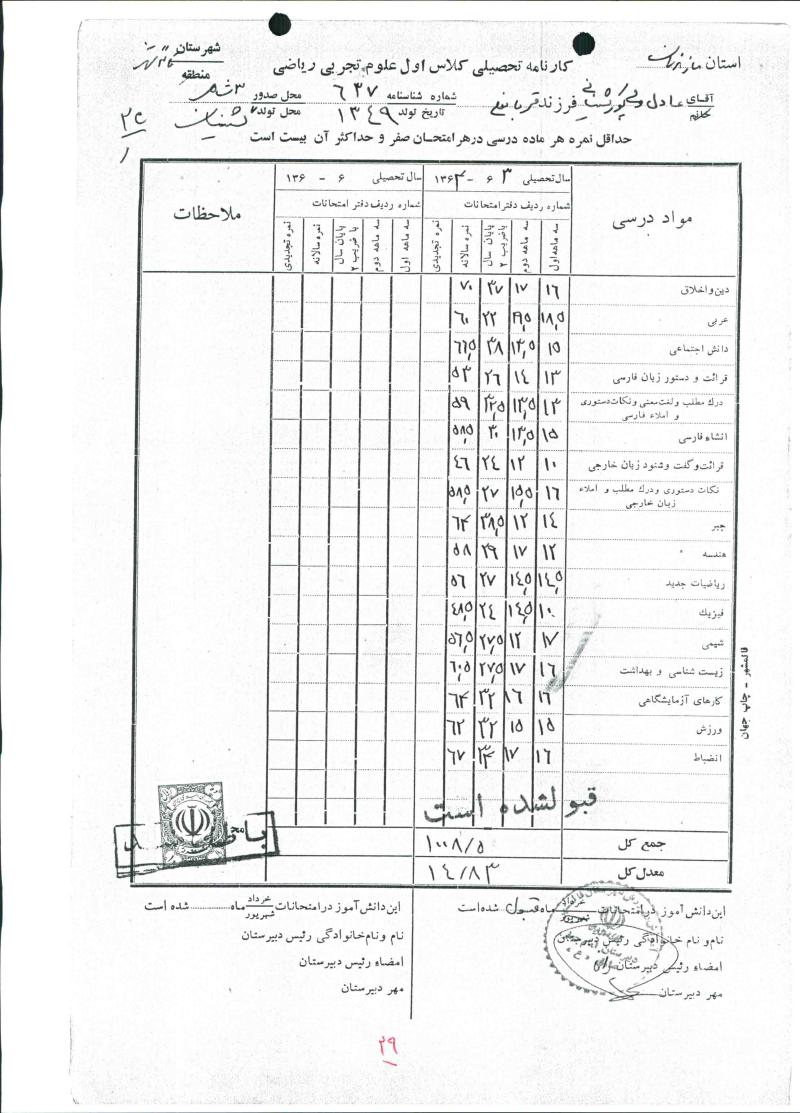 استان مازندران
شهرستان
منطقه
کارنامه تحصیلی کلاس اول علوم تجربی ریاضی
آقای عادل فرزند قربانعلی شماره شناسنامه ۶۳۷ محل صدور
خانم
تاریخ تولد ۱۳۴۹ محل تولد
حداقل نمره هر ماده درسی در هر امتحان صفر و حداکثر آن بیست است
مواد درسی سال تحصیلی ۶۳ - ۱۳۶۲ سال تحصیلی ۶ - ۱۳۶ ملاحظات
شماره ردیف دفتر امتحانات شماره ردیف دفتر امتحانات
سه ماهه اول سه ماهه دوم پایان سال با ضریب ۲ نمره سالانه نمره تجدیدی سه ماهه اول سه ماهه دوم پایان سال با ضریب ۲ نمره سالانه نمره تجدیدی
دین و اخلاق ۱۶ ۱۷ ۳۷ ۷۰
عربی ۱۸,۵ ۱۹,۵ ۲۲ ۶۰
دانش اجتماعی ۱۵ ۱۳,۵ ۳۸ ۶۶,۵
قرائت و دستور زبان فارسی ۱۳ ۱۴ ۲۶ ۵۳
درک مطلب و لغت معنی و نکات دستوری و املاء فارسی ۱۳ ۱۳,۵ ۳۲,۵ ۵۹
انشاء فارسی ۱۵ ۱۳,۵ ۳۰ ۵۸,۵
قرائت و گفت و شنود زبان خارجی ۱۰ ۱۲ ۲۴ ۴۶
نکات دستوری و درک مطلب و املاء زبان خارجی ۱۶ ۱۵,۵ ۲۷ ۵۸,۵
جبر ۱۴ ۱۲ ۳۸,۵ ۶۴
هندسه ۱۲ ۱۷ ۲۹ ۵۸
ریاضیات جدید ۱۴,۵ ۱۴,۵ ۲۷ ۵۶
فیزیک ۱۰ ۱۴,۵ ۲۴ ۴۸,۵
شیمی ۱۷ ۱۲ ۲۷,۵ ۵۶,۵
زیست شناسی و بهداشت ۱۶ ۱۷ ۲۷,۵ ۶۰,۵
کارهای آزمایشگاهی ۱۶ ۱۶ ۳۲ ۶۴
ورزش ۱۵ ۱۵ ۳۲ ۶۲
انضباط ۱۶ ۱۷ ۳۴ ۶۷
قبولشده است
جمع کل ۱۰۰۸/۵
معدل کل ۱۴/۸۳
این دانش آموز در امتحانات ماه قبول شده است
نام و نام خانوادگی رئیس دبیرستان
امضاء رئیس دبیرستان
مهر دبیرستان
این دانش آموز در امتحانات خرداد شهریور ماه شده است
نام و نام خانوادگی رئیس دبیرستان
امضاء رئیس دبیرستان
مهر دبیرستان
قائمشهر - چاپ جهان
۲۹